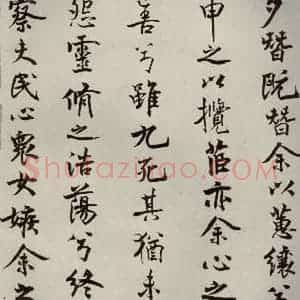 夕替既替余以蕙纕兮
申之以攬茝亦余心之
善兮雖九死其猶未
怨靈脩之浩蕩兮終
察夫民心衆女嫉余之